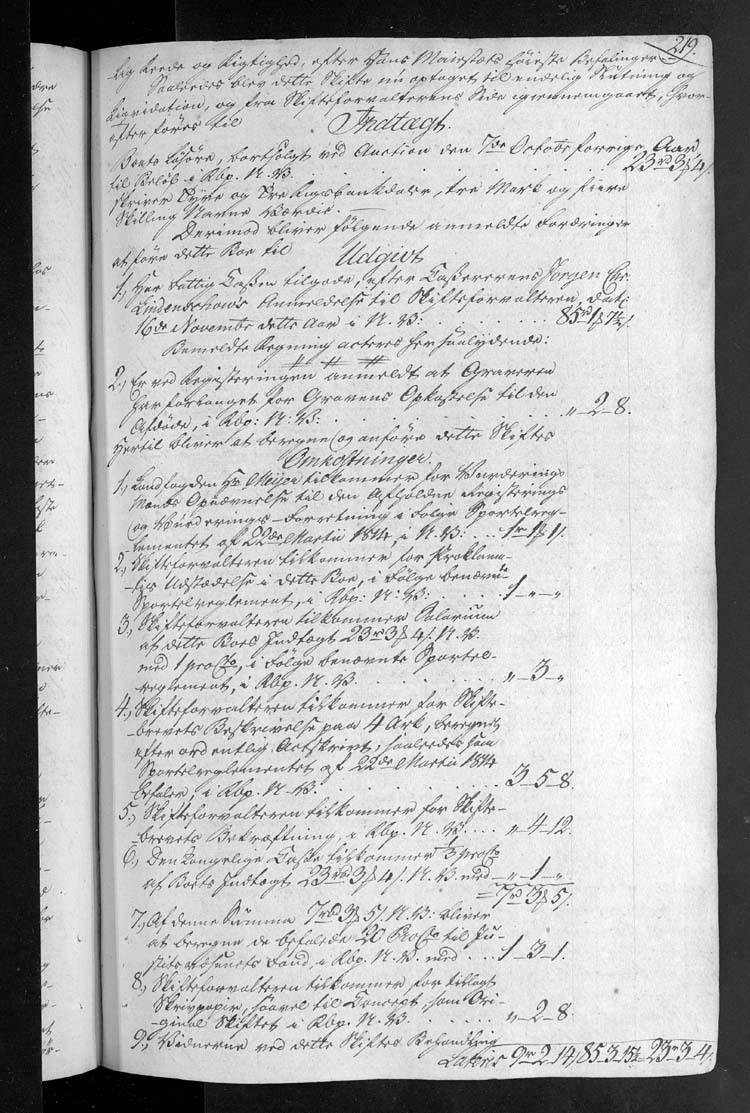 219.
lig Rede og Rigtighed, efter Hans Maiestæts høieste Befalinger.
Saaledes blev dette Skifte nu optaget til endelig Slutning og
Liqvidation, og fra Skifteforvalterens Side igiennemgaaet, hvor-
efter føres til
Indtægt.
Boets Løsøre, bortsolgt ved Auction den 7de Octobr forrige Aar
til Beløb i Rbp. N. V. 23rd 3 ß 4 s.
skriver Tyve og Tre Rigsbankdaler, tre Mark og fiire
Skilling Navne Værdie.
Derimod bliver følgende anmeldte Fordringer
at føre dette Boe til
Udgivt
1, Her Fattig Cassen tilgode, efter Cassererens Jørgen Chr.
Lindenskows Anmeldelse til Skifteforvalteren, dat:
16de Novembr dette Aar i N. V: 85rd 1 ß 7½ s.
Bemeldte Regning acteres her saalydende:
2., Er ved Registeringen anmeldt at Graveren
har forlanget for Gravens Opkastelse til den
Afdøde, i Rbp: N: V: „ - 2 - 8.
Hertil bliver at beregne og anføre dette Skiftes
Omkostninger.
1., Landfogden Hr Meyer tilkommer for Vurderings
Mænds Opnævnelse til den afholdne Registerings
og Vurderings-Forretning i Følge Sportelreg-
lementet af 22de Martii 1814 i N. V: 1r 1 ß 1 s.
2., Skifteforvalteren tilkommer for Proklama-
tis Udstædelse i dette Boe, i Følge benævnte
Sportelreglement, i Rbp: N: V: 1 - „ - „
3., Skifteforvalteren tilkommer Salarium
af dette Boes Indtægt 23r 3 ß 4 s. N. V.
med 1 proCto, i Følge benævnte Sportel-
reglement, i Rbp. N. V. „ - 3 - „
4., Skifteforvalteren tilkommer for Skifte-
brevets Beskrivelse paa 4 Ark, beregnet
efter ordentlig Actskrivt, saaledes som
Sportelreglementet af 22de Martii 1814
befaler, i Rbp. N. V. 3 - 5 - 8.
5., Skifteforvalteren tilkommer for Skifte-
brevets Bekræftning, i Rbp. N. V. „ - 4 - 12.
6., Den Kongelige Casse tilkommer ⅓ proCto
af Boets Indtægt 23rd 3 ß 4 s. N. V. med „ - 1 - „
= 7rd 3 ß 5 s.
7., Af denne Summa 7rd 3 ß 5 s. N. V: bliver
at beregne de befalede 20 ProCto til Ju-
stits Fond, i Rbp. N. V. med 1 - 3 - 1.
8., Skifteforvalteren tilkommer for tillagt
Skrivpapir, saavel til Concept, som Ori-
ginal Skiftet i Rbp. N. V. „ - 2 - 8.
9., Vidnerne ved dette Skiftes Behandling
Lateris 9rd 2 - 14, 85 - 3 - 15½ - 23r 3 - 4 s.